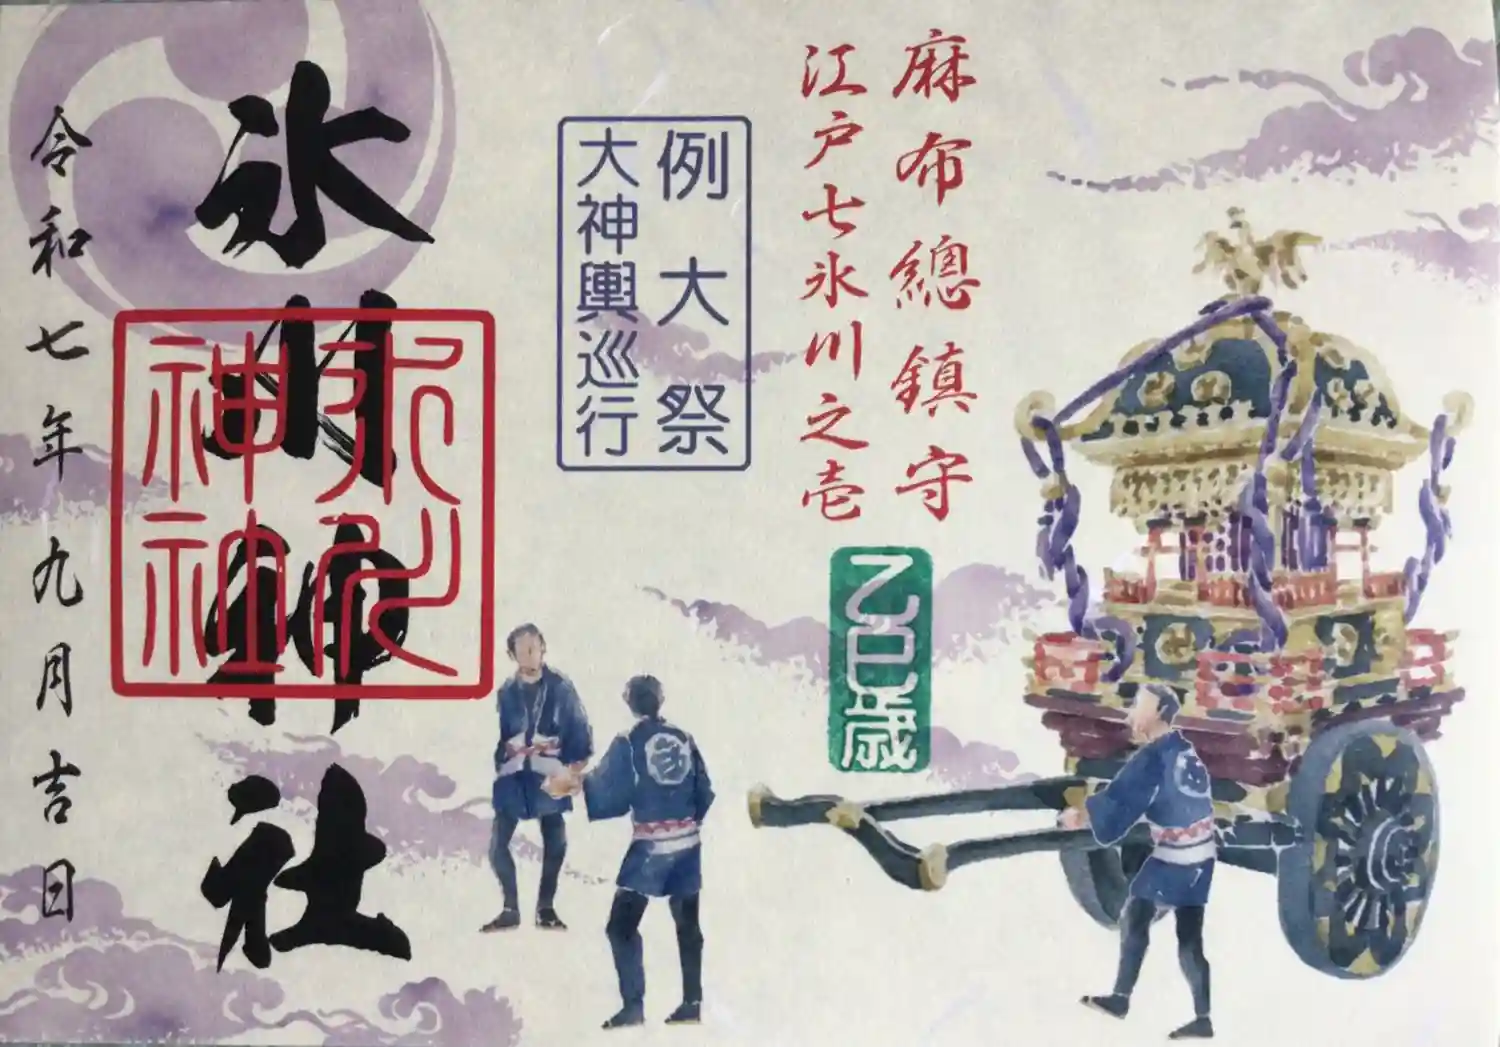 麻布總鎮守
江戸七氷川之壱
乙巳歳
例大祭
大神輿巡行
氷川神社
氷川
神社
令和七年九月吉日